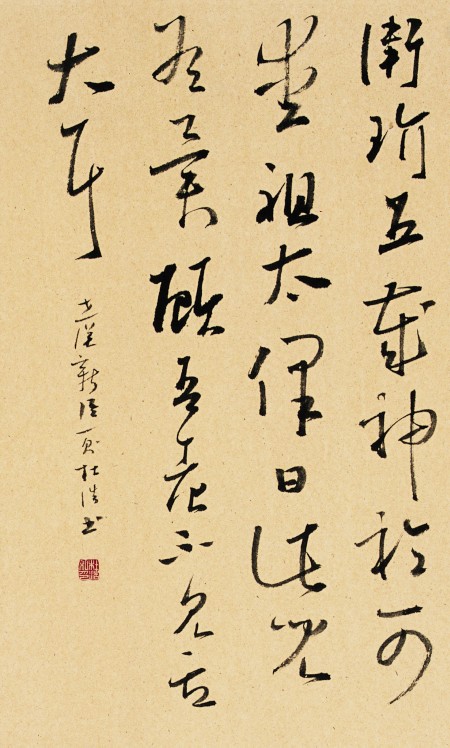 衛玠五歲神衿可
愛祖太保曰此兒
有異顧吾老不見其
大耳
世說新語一則杜浩書